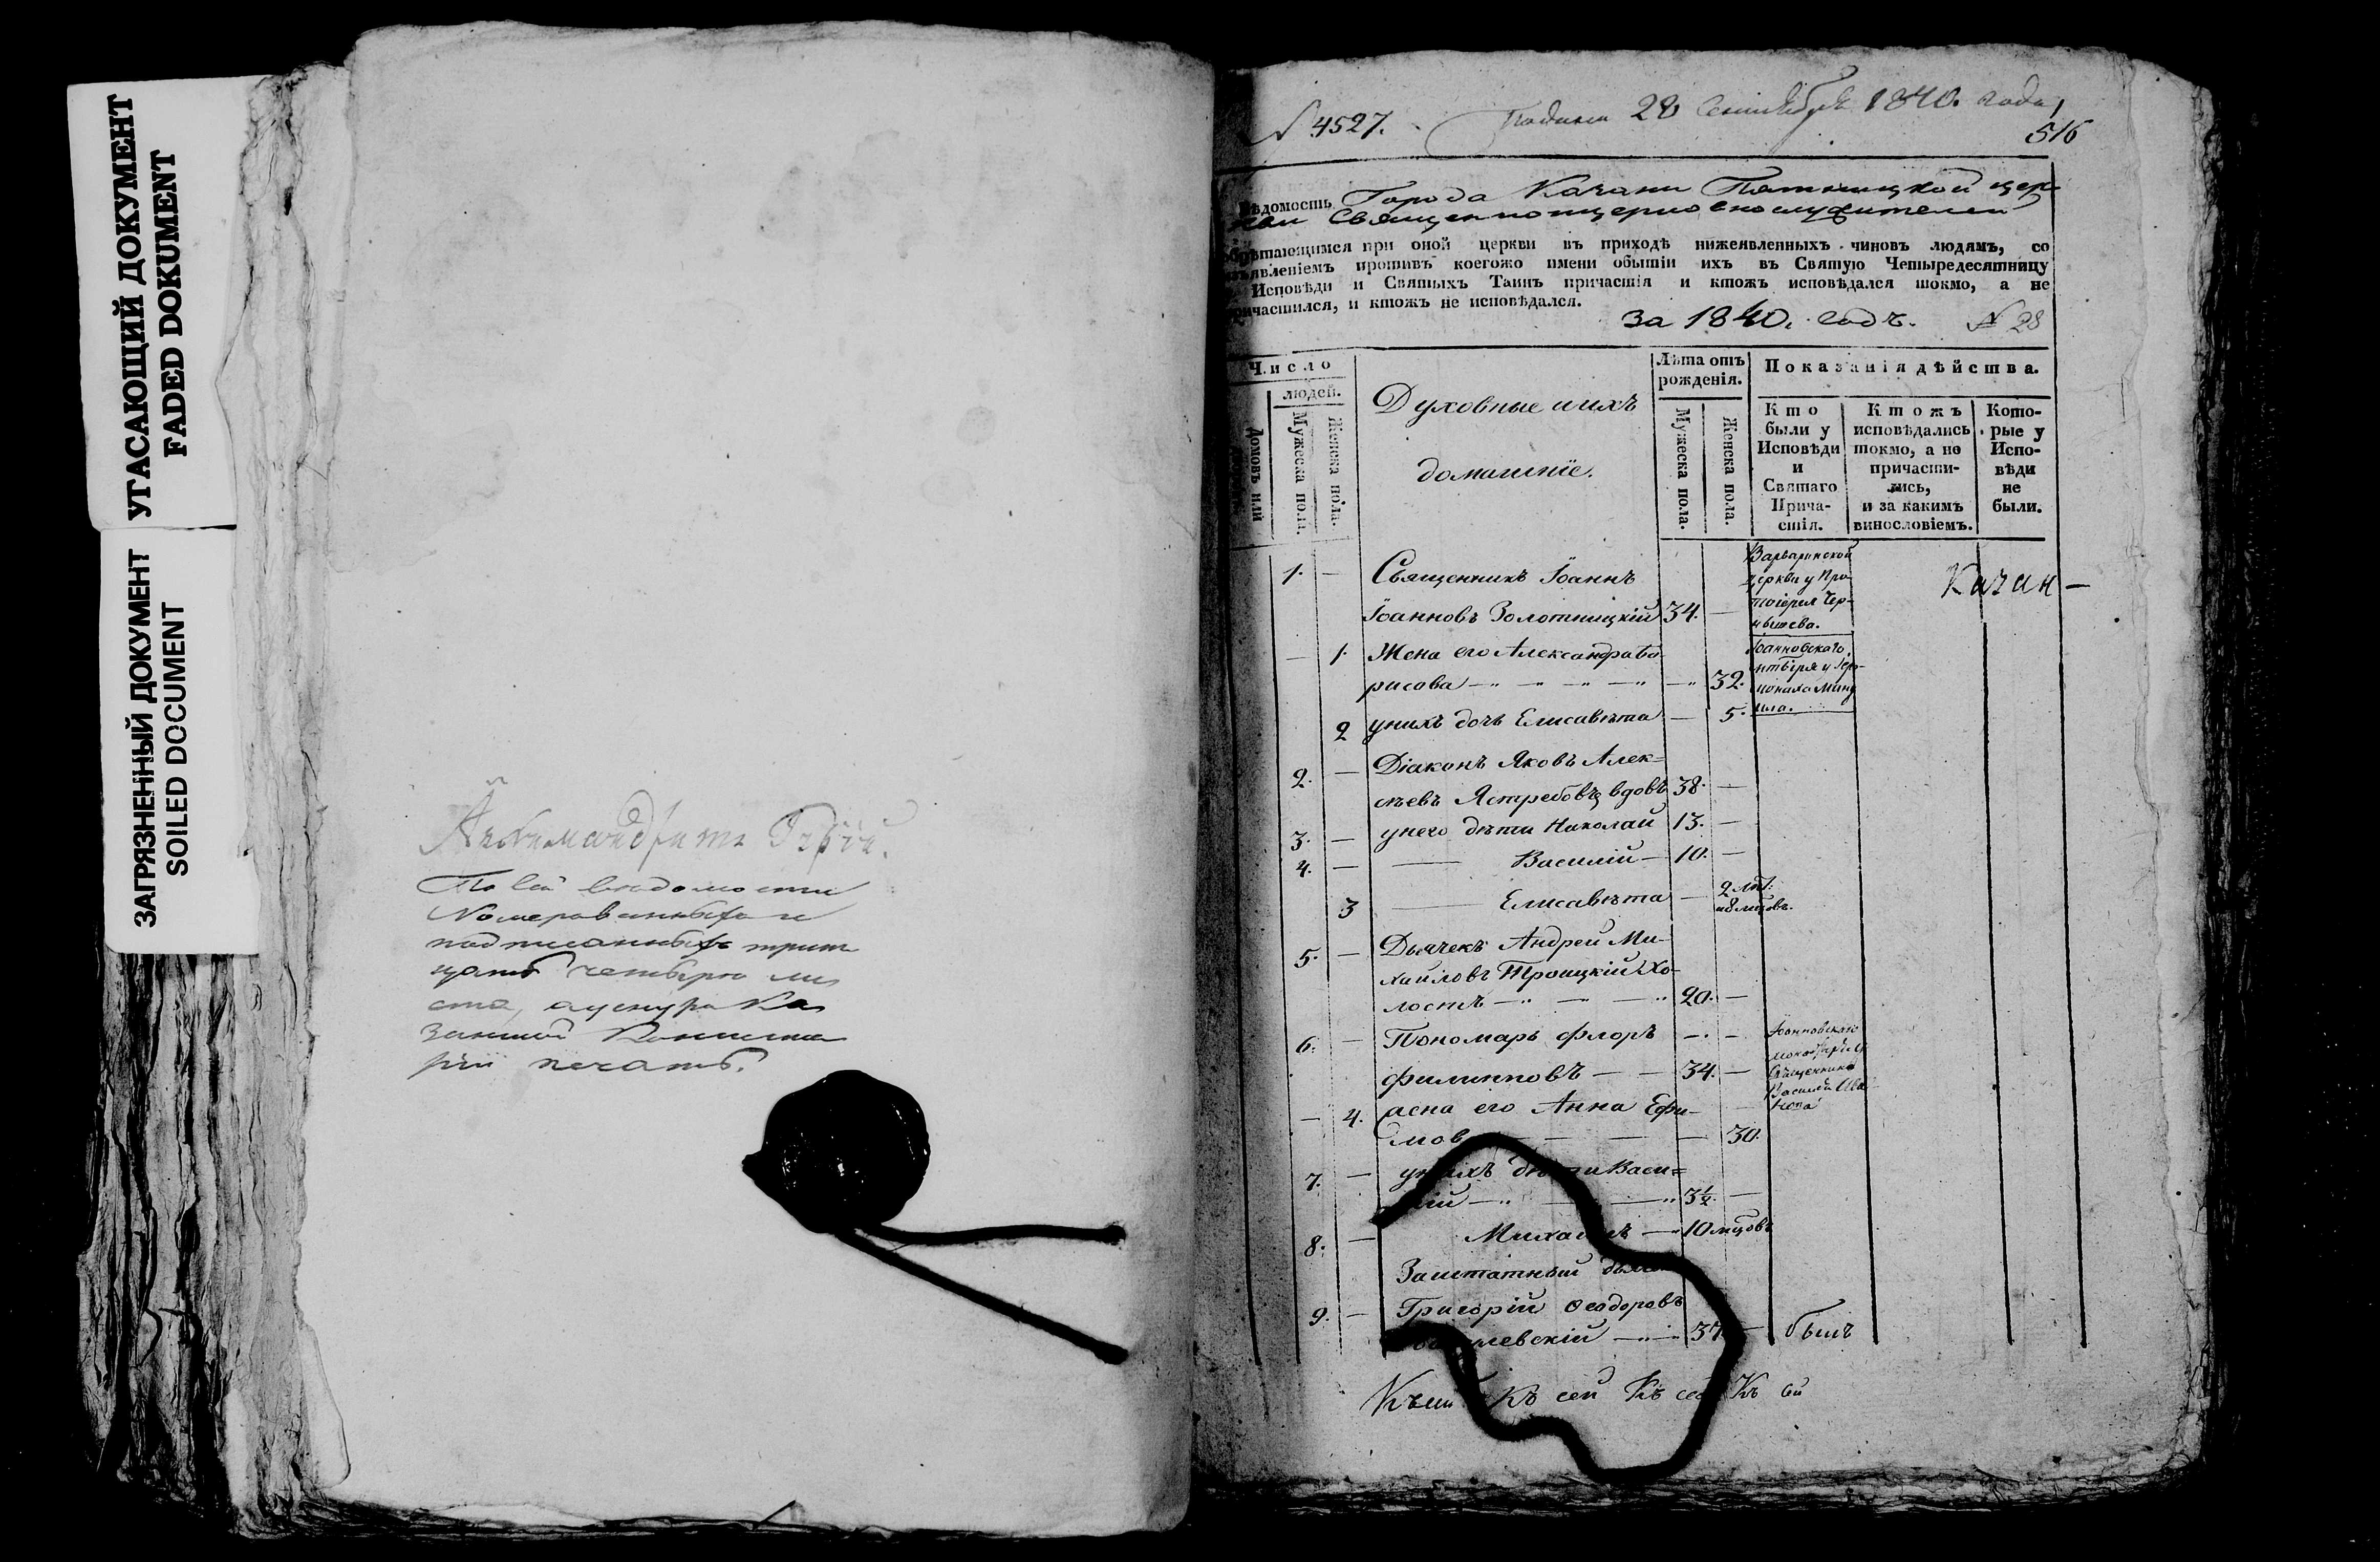 УГАСАЮЩИЙ ДОКУМЕНТ
FADED DOKUMENT
ЗАГРЯЗНЕННЫЙ ДОКУМЕНТ
SOILED DOCUMENT
Архимандритъ
По сей ведомости
Номерованныхъ и
подписанныхъ трит
цать четыре ли
ста, а у снура Ка
занской Консисто
ріи печать.
№ 4527. Подана 28 Сентября 1840. года,
516
Вѣдомость Города Казани Пятницкой цер-
кви Священноцерковнослужителей
обрѣтающимся при оной церкви въ приходѣ нижеявленныхъ чиновъ людямъ, со
изъявленіемъ противъ коегожо имени обытіи ихъ въ Святую Четыредесятницу
Исповѣди и Святыхъ Таинъ причастія и ктожъ исповѣдался токмо, а не
причастился, и ктожъ не исповѣдался.
За 1840. годъ. № 28
Число
людей.
Домовъ или
Мужеска пола.
Женска пола.
Духовные и ихъ
домашніе.
Лѣта отъ
рожденія.
Мужеска пола.
Женска пола.
Показанія дѣйства.
Кто
были у
Исповѣди
и
Святаго
Прича-
стія.
Ктожъ
исповѣдались
токмо, а не
причасти-
лись,
и за какимъ
винословіемъ.
Кото-
рые у
Испо-
вѣди
не
были.
1. — Священникъ Іоаннъ
Іоанновъ Золотницкій 34. —
Варваринской
церкви у Про-
тоіерея Чер-
нышева.
Казан —
— 1. Жена его Александра Бо-
рисова — 32.
Іоанновскаго
мнтыря у Іеро-
монаха
2 у нихъ дочь Елисавѣта — 5.
2. — Діаконъ Яковъ Алек=
сѣевъ Ястребовъ, вдовъ 38. —
3. — у него дѣти Николай 13. —
4. — Василій — 10. —
3 Елисавѣта — 2 лѣт.
и 8 мцовъ.
5. — Дьячекъ Андрей Ми-
хайловъ Троицкій Хо-
лостъ — 20. —
6. — Пономарь Флоръ — —
Филипповъ — 34. —
Іоанновскаго
монастыря
Священника
Василія Ива
нова
— 4. жена его Анна Ефи-
мов — 30.
7. — у нихъ дѣти Васи=
лій — 3½. —
8. — Михаилъ — 10 мцовъ
Заштатный
9. — Григорій Ѳеодоровъ
37. — былъ
Къ сей Къ сей Къ сей